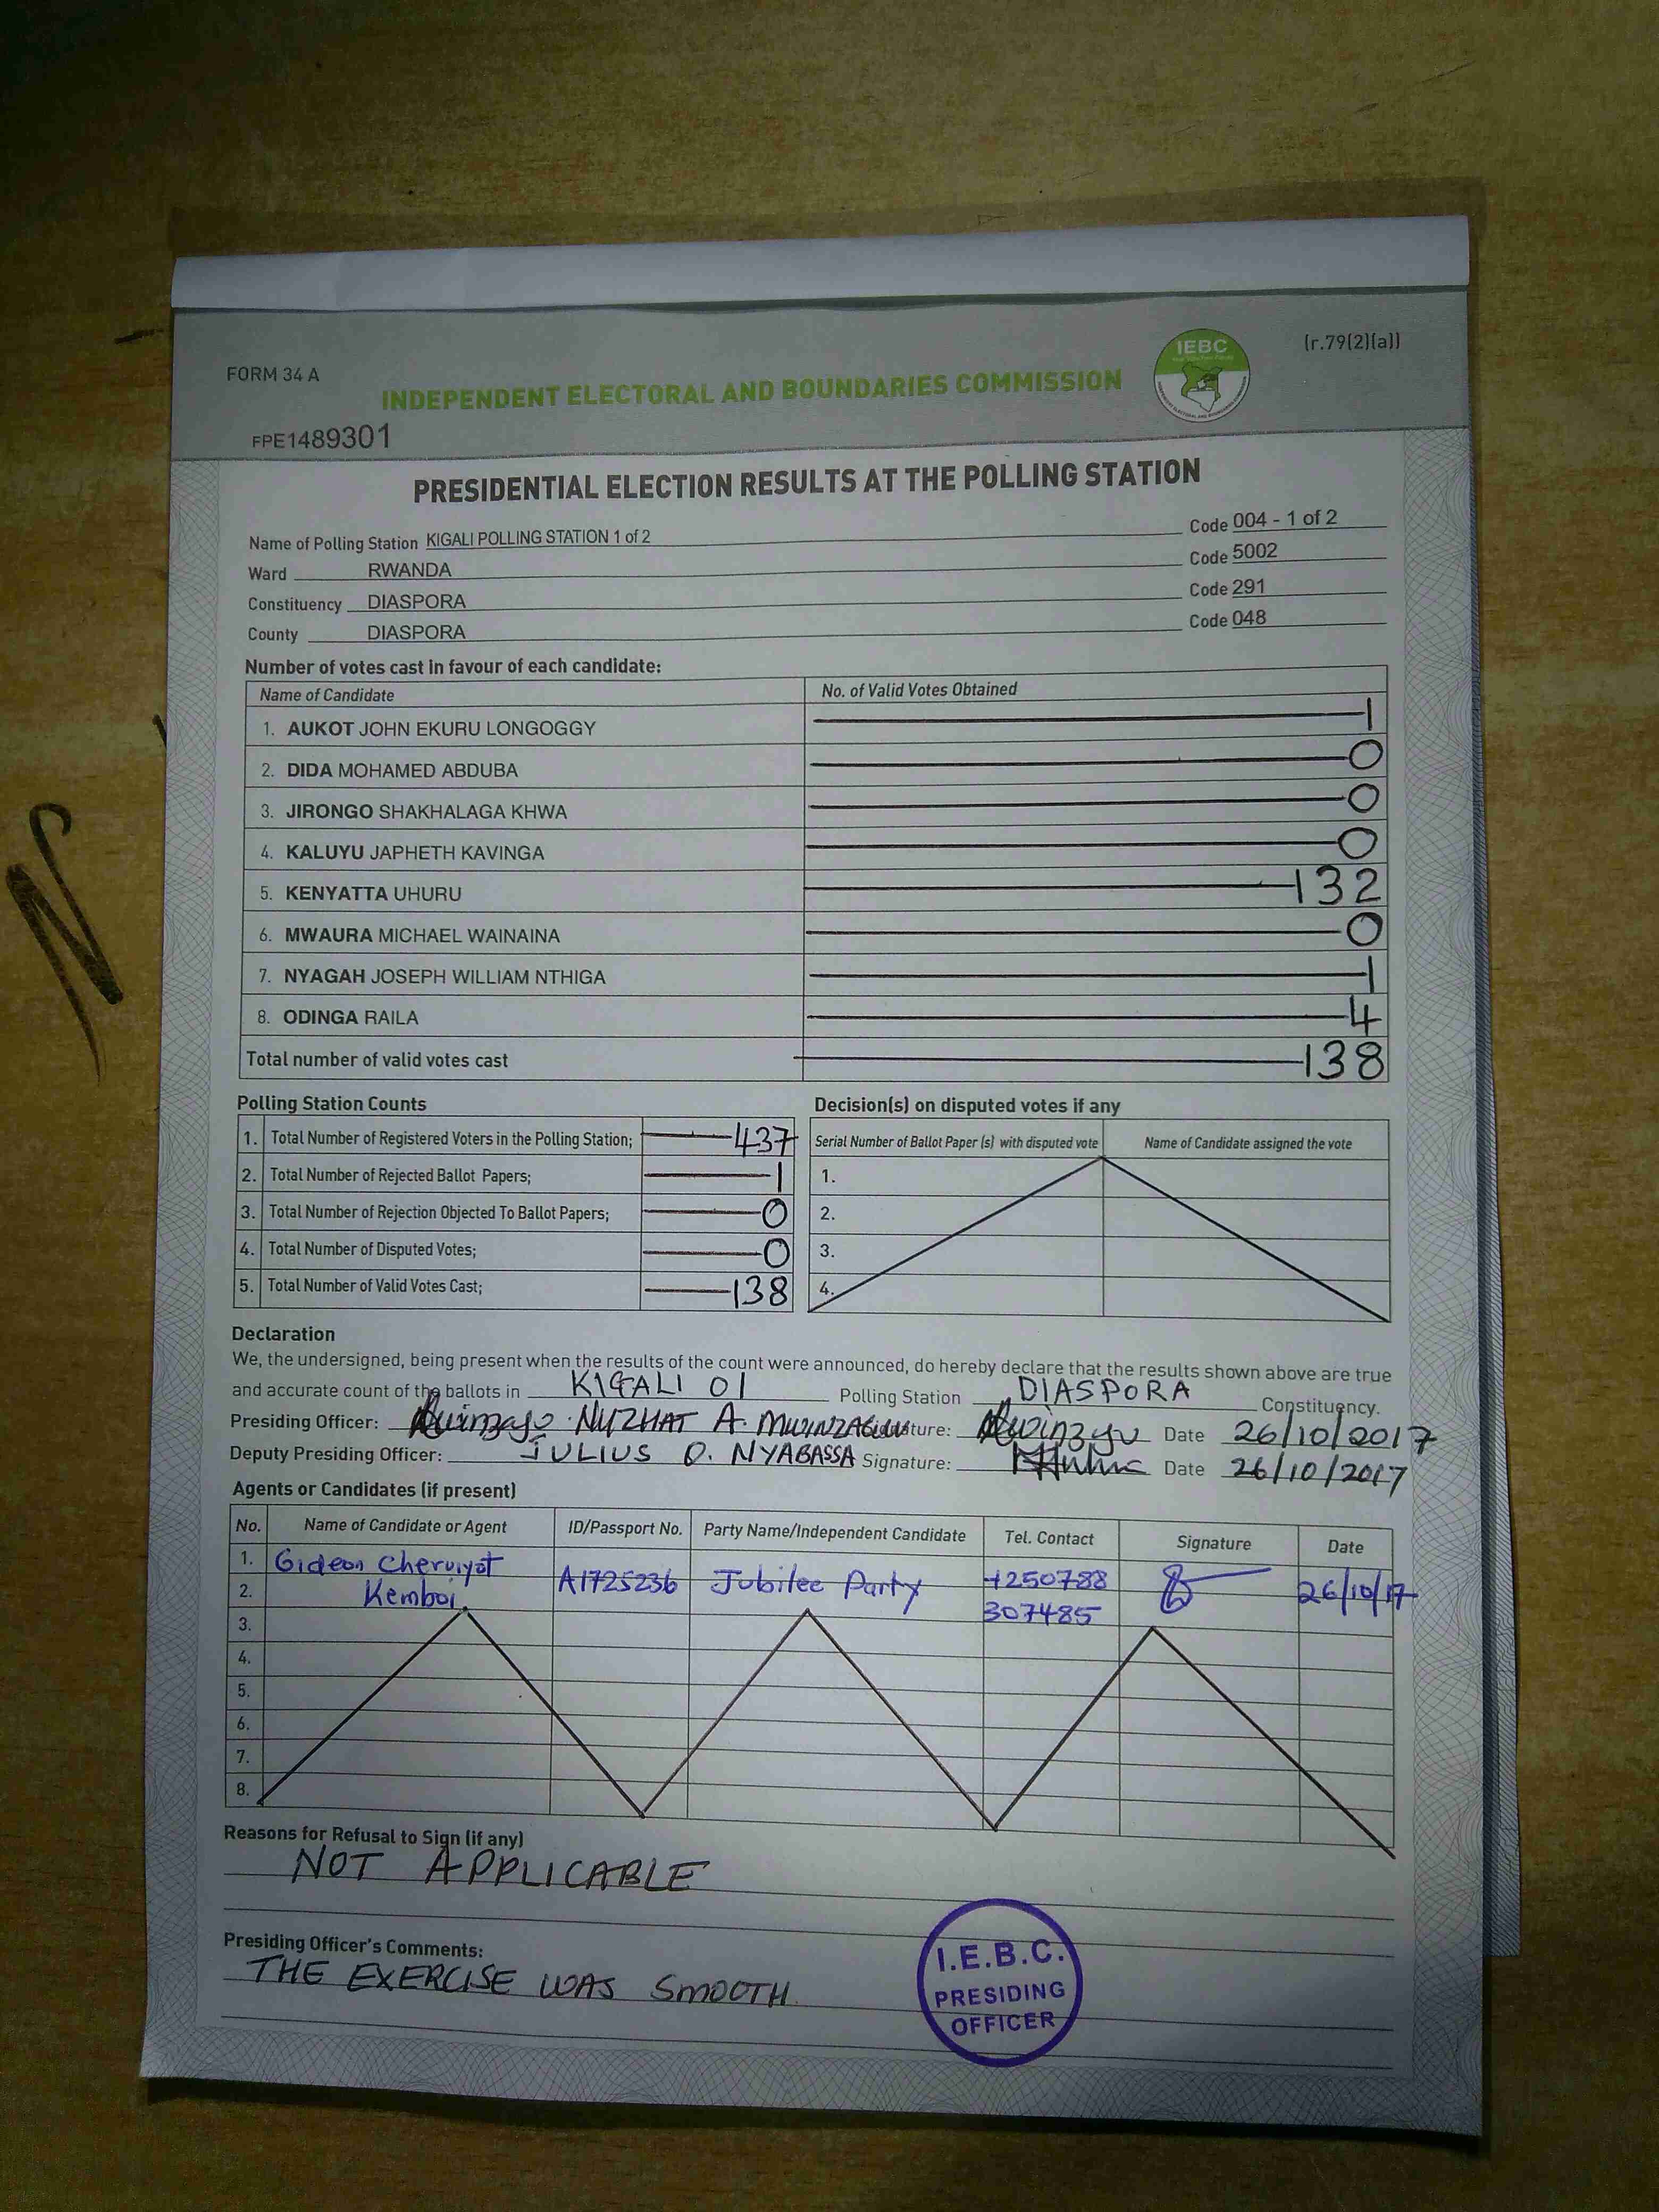 FORM 34 A
IEBC
(r.79(2)(a))
INDEPENDENT ELECTORAL AND BOUNDARIES COMMISSION
FPE1489301
PRESIDENTIAL ELECTION RESULTS AT THE POLLING STATION
Name of Polling Station KIGALI POLLING STATION 1 of 2 Code 004 - 1 of 2
Ward RWANDA Code 5002
Constituency DIASPORA Code 291
County DIASPORA Code 048
Number of votes cast in favour of each candidate:
Name of Candidate No. of Valid Votes Obtained
1. AUKOT JOHN EKURU LONGOGGY 1
2. DIDA MOHAMED ABDUBA 0
3. JIRONGO SHAKHALAGA KHWA 0
4. KALUYU JAPHETH KAVINGA 0
5. KENYATTA UHURU 132
6. MWAURA MICHAEL WAINAINA 0
7. NYAGAH JOSEPH WILLIAM NTHIGA 1
8. ODINGA RAILA 4
Total number of valid votes cast 138
Polling Station Counts
1. Total Number of Registered Voters in the Polling Station; 437
2. Total Number of Rejected Ballot Papers; 1
3. Total Number of Rejection Objected To Ballot Papers; 0
4. Total Number of Disputed Votes; 0
5. Total Number of Valid Votes Cast; 138
Decision(s) on disputed votes if any
Serial Number of Ballot Paper (s) with disputed vote Name of Candidate assigned the vote
1.
2.
3.
4.
Declaration
We, the undersigned, being present when the results of the count were announced, do hereby declare that the results shown above are true
and accurate count of the ballots in KIGALI 01 Polling Station DIASPORA Constituency.
Presiding Officer: NUZHAT A. Signature: Date 26/10/2017
Deputy Presiding Officer: JULIUS O. NYABASSA Signature: Date 26/10/2017
Agents or Candidates (if present)
No. Name of Candidate or Agent ID/Passport No. Party Name/Independent Candidate Tel. Contact Signature Date
1. Gideon Cheruiyot
2. Kemboi A1725236 Jubilee Party +250788 307485 26/10/17
3.
4.
5.
6.
7.
8.
Reasons for Refusal to Sign (if any)
NOT APPLICABLE
Presiding Officer's Comments:
THE EXERCISE WAS SMOOTH.
I.E.B.C.
PRESIDING
OFFICER
N